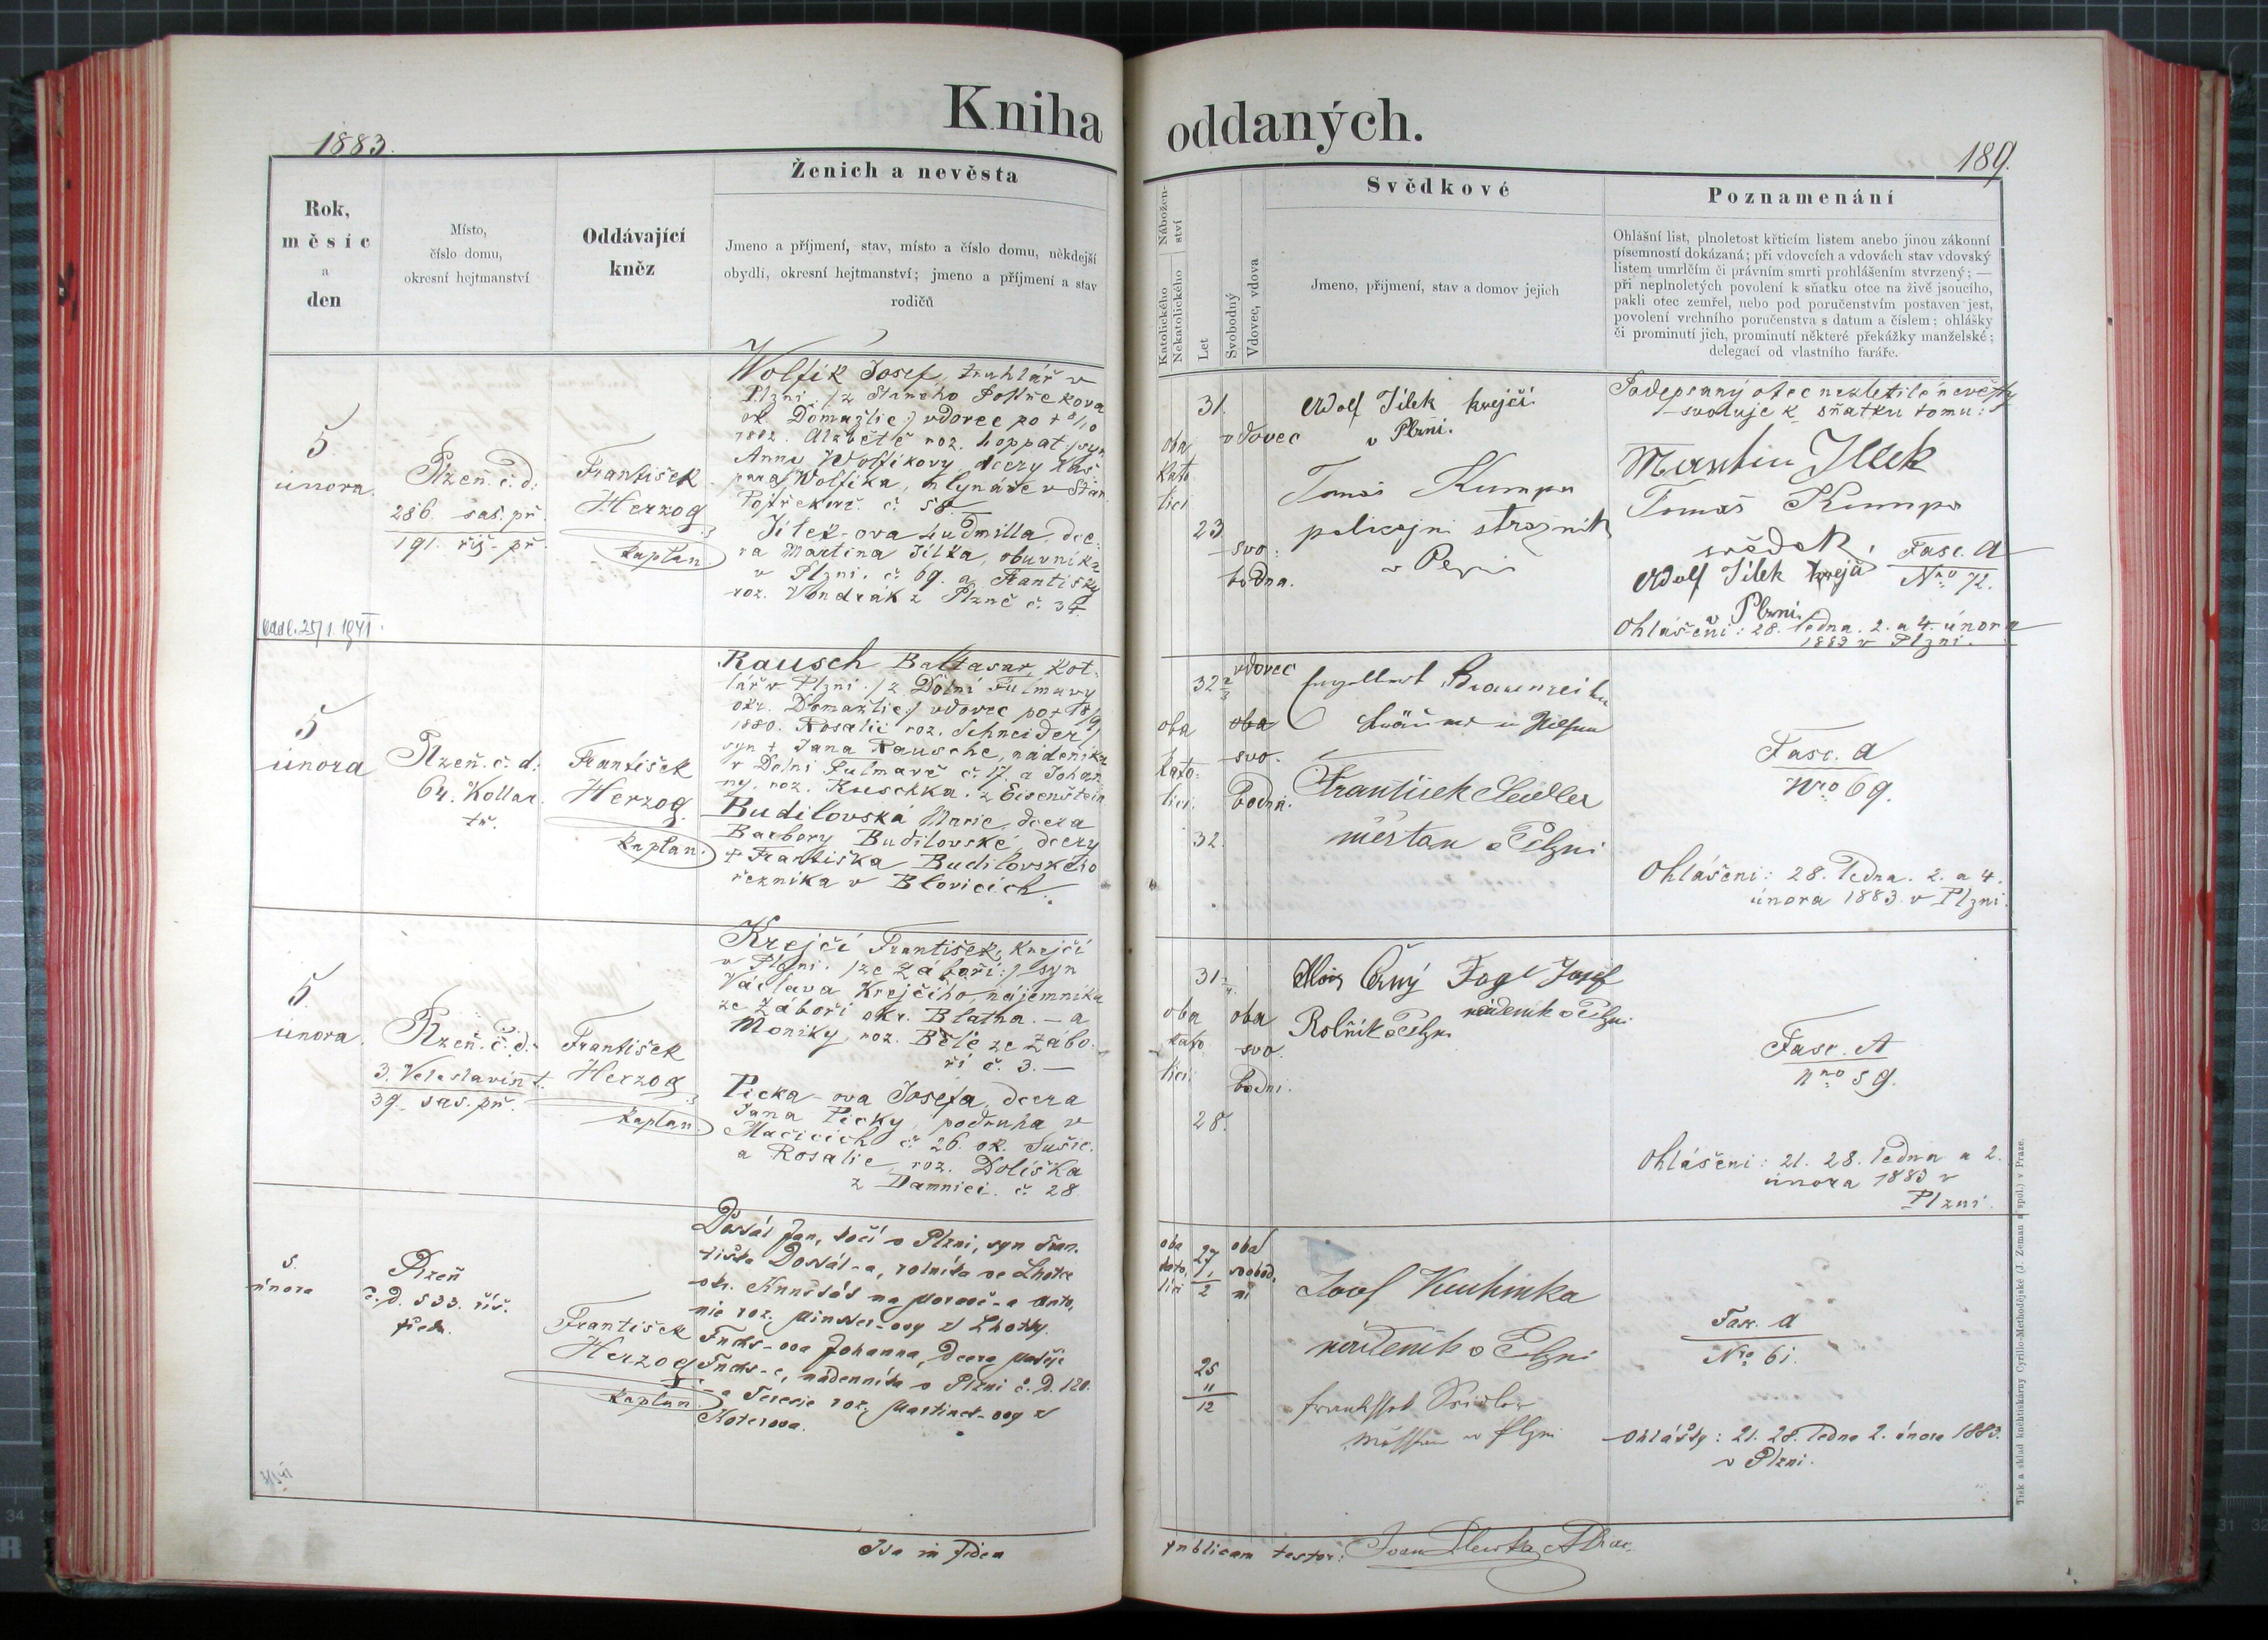 Kniha oddaných.
1883.
189.
Rok,
měsíc
a
den
Místo,
číslo domu,
okresní hejtmanství
Oddávající
kněz
Ženich a nevěsta
Jmeno a příjmení, stav, místo a číslo domu, někdejší
obydlí, okresní hejtmanství; jmeno a příjmení a stav
rodičů
Katolického
Nekatolického
Nábožen-
ství
Let
Svobodný
Vdovec, vdova
Svědkové
Jmeno, příjmení, stav a domov jejich
Poznamenání
Ohlášní list, plnoletost křticím listem anebo jinou zákonní
písemností dokázaná; při vdovcích a vdovách stav vdovský
listem umrlčím či právním smrti prohlášením stvrzený; —
při neplnoletých povolení k sňatku otce na živě jsoucího,
pakli otec zemřel, nebo pod poručenstvím postaven jest,
povolení vrchního poručenstva s datum a číslem; ohlášky
či prominutí jich, prominutí některé překážky manželské;
delegací od vlastního faráře.
5
února.
Plzeň. č. d.
286 sas. př.
191. řiš. př.
František
Herzog
kaplan.
Wolfík Josef, truhlář v
Plzni, /z Starého Postřekova
ok. Domažlic:/ vdovec po + 8/10
1882. Alžbětě roz. Loppat:/ syn
Anny Wolfíkovy, dcery Kaš
para Wolfíka, mlynáře v Star.
Postřekově. č. 58.
Jílek-ova Ludmilla, dce-
ra Martina Jílka, obuvníka
v Plzni. č. 69. a Františky
roz. Vondrák z Plzně č. 34
oba
kato
líci
31.
vdovec
23
svo:
bodna.
Adolf Jílek krejčí
v Plzni.
Tomáš Kumpa
policejní strážník
v Plzni
Podepsaný otec nezletilé nevěsty
svoluje k sňatku tomu:
Martin Jílek
Tomáš Kumpa
svědek.
Adolf Jílek krejčí
v Plzni.
Fasc. A
Nro 72.
Ohlášeni: 28. ledna. 2. a 4. února
1883 v Plzni.
5
února
Plzeň. č. d.
64. Kollar.
tř.
František
Herzog.
kaplan.
Rausch Baltasar kot-
lář v Plzni. /z Dolní Fulmavy
okr. Domažlic:/ vdovec po + 18/9
1880. Rosalii roz. Schneider,
syn + Jana Rausche, nádeníka
v Dolní Fulmavě č. 17. a Johan
ny, roz. Kuschka. z Eisenštein
Budilovská Marie, dcera
Barbory Budilovské, dcery
+ Františka Budilovského
řezníka v Blovicích.
oba
kato:
líci.
32 2/3
vdovec
oba
svo.
bodni.
32.
František Seidler
měšťan v Plzni
Fasc. A
Nro 69.
Ohlášeni: 28. ledna. 2. a 4.
února 1883 v Plzni.
5.
února.
Plzeň. č. d.
3. Veleslavín t.
39. sas. př.
František
Herzog
kaplan.
Krejčí František, krejčí
v Plzni. /ze Záboří:/ syn
Václava Krejčího, nájemníka
ze Záboří okr. Blatna. — a
Moniky, roz. Bělé ze Zábo-
ří č. 3. —
Picka-ova Josefa, dcera
Jana Picky, podruha v
Mačicích č. 26. ok. Sušic.
a Rosalie, roz. Dolíška
z Damnici. č. 28
oba
kato
líci.
31
oba
svo.
bodni.
28.
Alois Černý
Rolník v Plzni
Fogl Josef
nádeník v Plzni.
Fasc. A
Nro 59.
Ohlášeni: 21. 28. ledna a 2.
února 1883 v
Plzni.
5.
února
Plzeň
č. d. 533. říš.
předm.
František
Herzog
kaplan.
Dostál Jan, točí v Plzni, syn Fran-
tiška Dostál-a, rolníka ve Lhotce
okr. Kunštát na Moravě a Anto-
nie roz. Minster-ovy z Lhotky.
Fuchs-ova Johanna, dcera Matěje
Fuchs-e, nádenníka v Plzni č. d. 120.
a Terezie roz. Martinek-ovy z
Koterova.
oba
kato.
líci
27
1/2
oba
svobod.
ni
25
11
12
Josef Kuchinka
nádeník v Plzni
Fasc. A
Nro 61.
Ohlášky: 21. 28. ledna 2. února 1883.
v Plzni.
Ita in fidem
publicam testor:
Tisk a sklad kněhtiskárny Cyrillo-Methodějské (J. Zeman a spol.) v Praze.